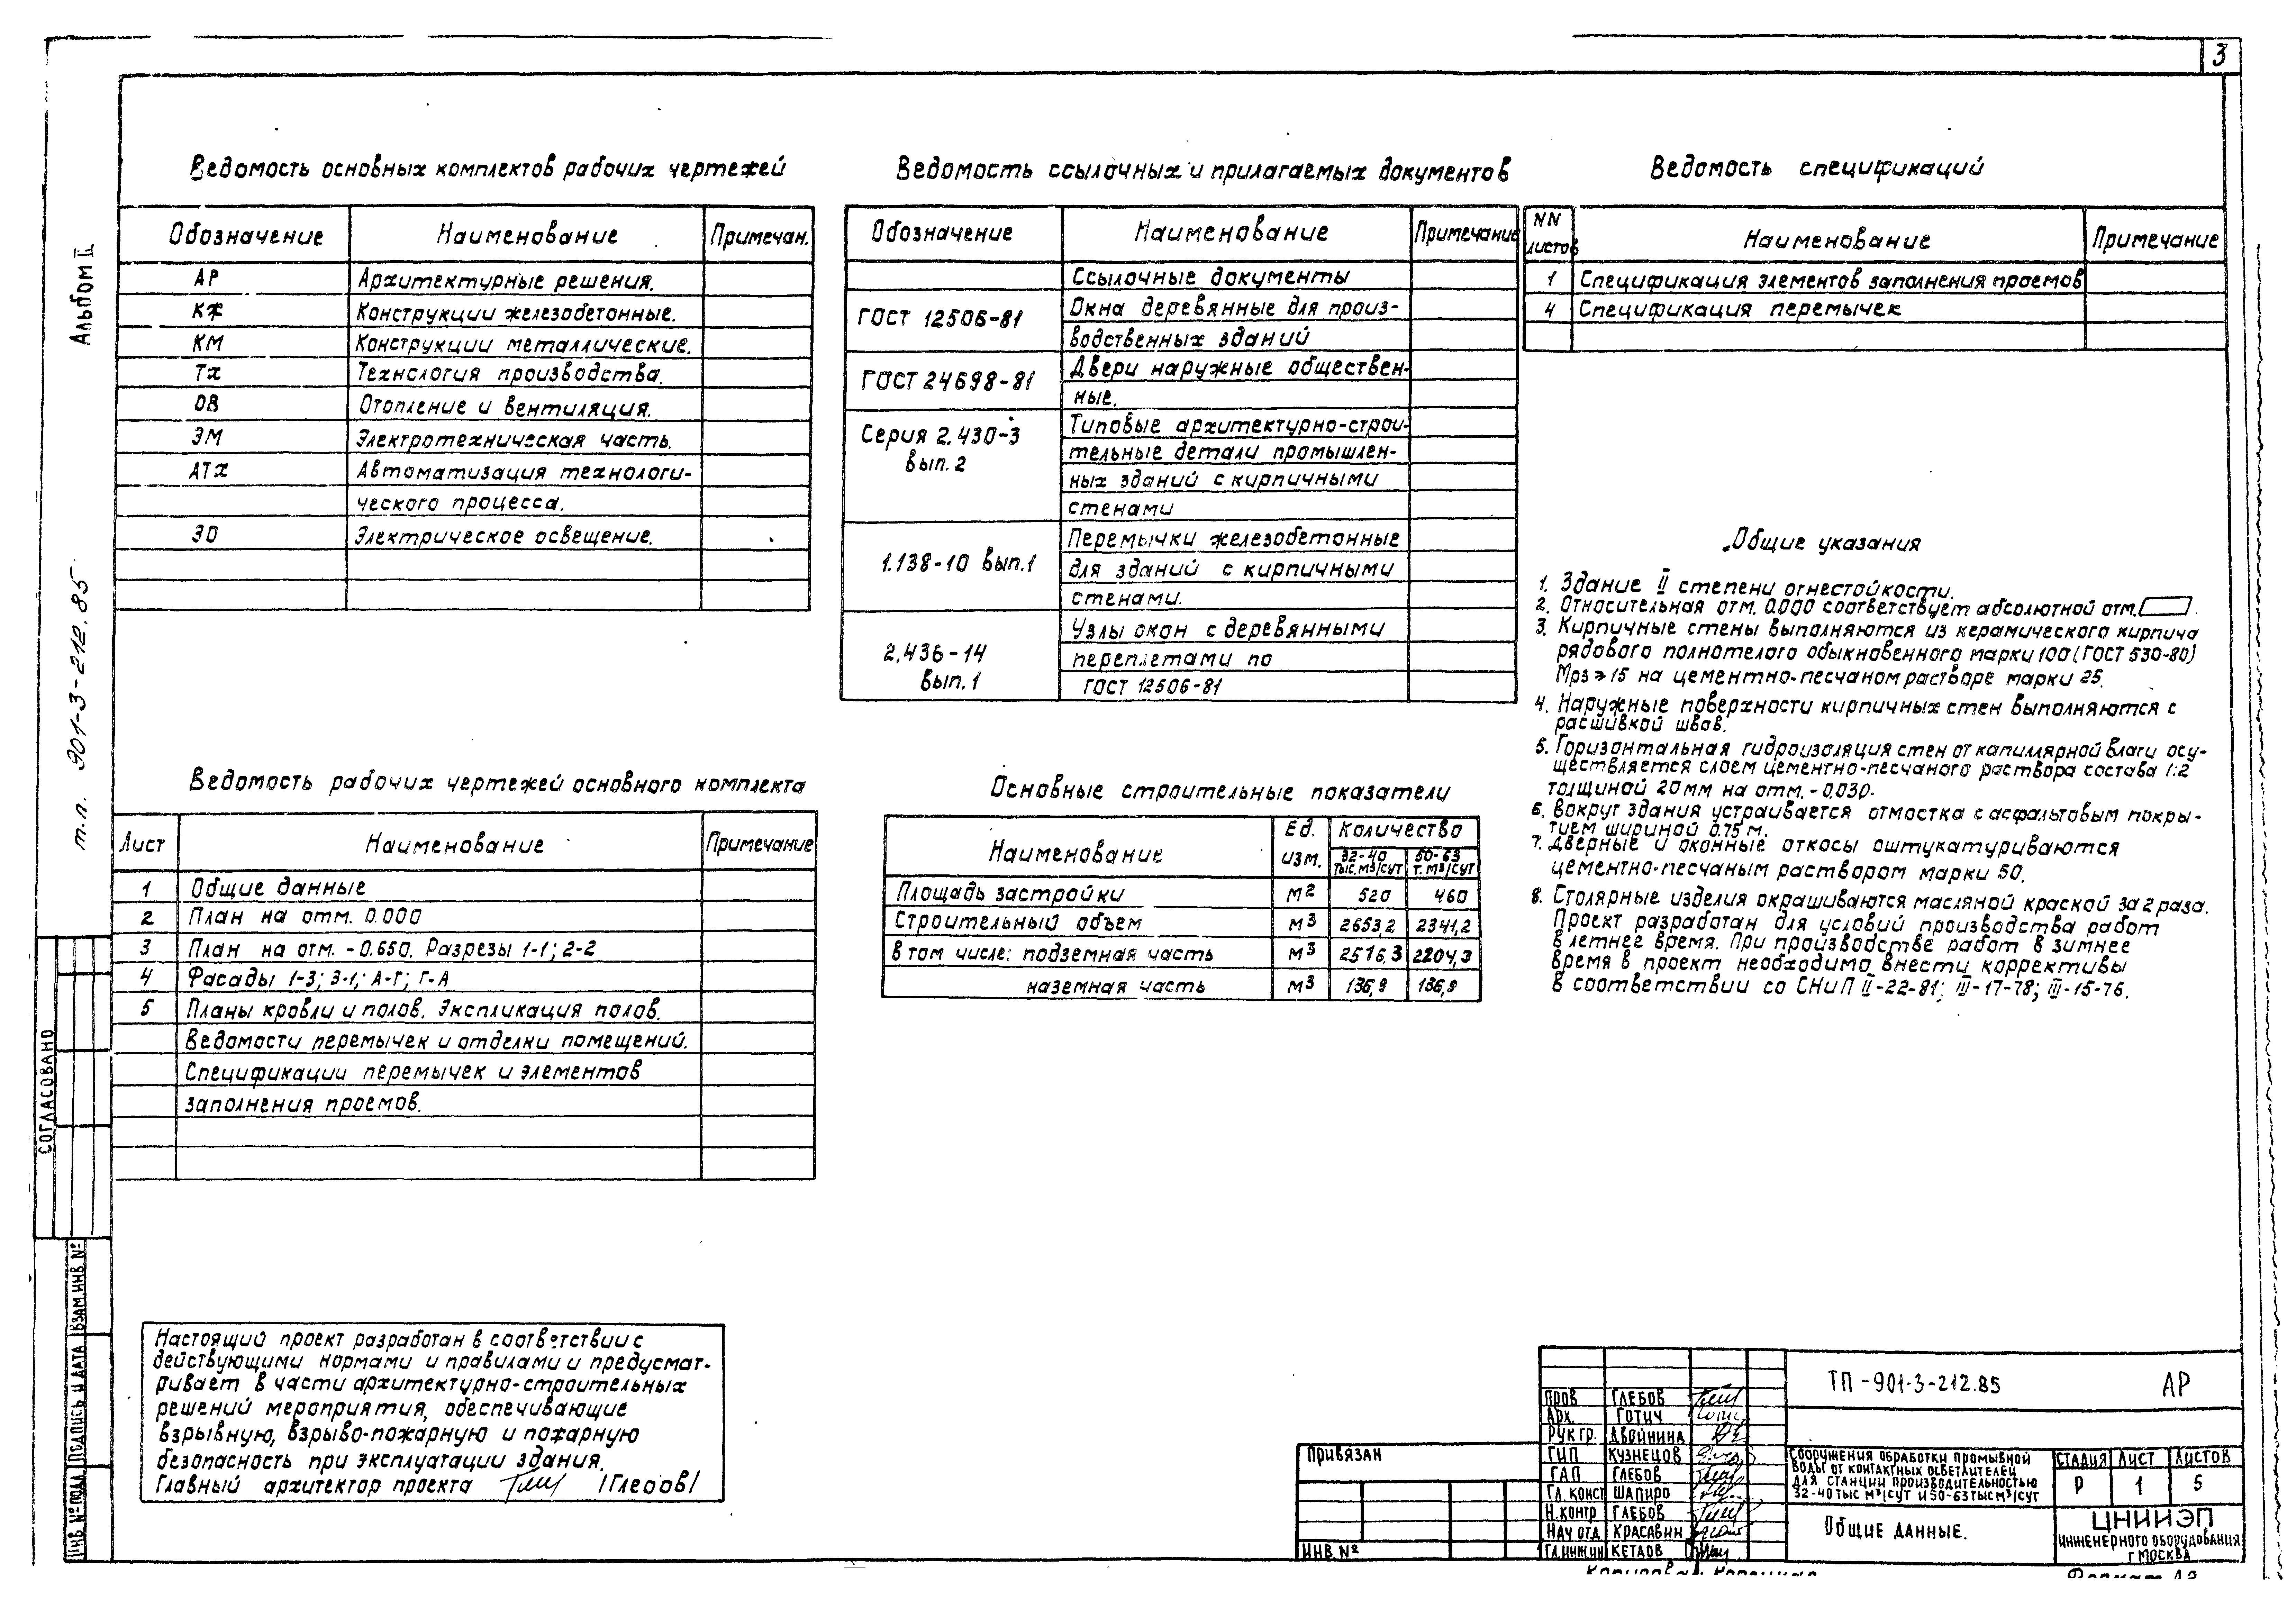 3
Альбом II
т.п. 901-3-212.85
Ведомость основных комплектов рабочих чертежей
Обозначение Наименование Примечан.
АР Архитектурные решения.
КЖ Конструкции железобетонные.
КМ Конструкции металлические.
ТХ Технология производства.
ОВ Отопление и вентиляция.
ЭМ Электротехническая часть.
АТХ Автоматизация технологи-
ческого процесса.
ЭО Электрическое освещение.
Ведомость ссылочных и прилагаемых документов
Обозначение Наименование Примечание
Ссылочные документы
ГОСТ 12506-81 Окна деревянные для произ-
водственных зданий
ГОСТ 24698-81 Двери наружные обществен-
ные.
Серия 2.430-3 Типовые архитектурно-строи-
вып.2 тельные детали промышлен-
ных зданий с кирпичными
стенами
1.138-10 вып.1 Перемычки железобетонные
для зданий с кирпичными
стенами.
2.436-14 Узлы окон с деревянными
вып.1 переплетами по
ГОСТ 12506-81
Ведомость спецификаций
NN листов Наименование Примечание
1 Спецификация элементов заполнения проемов
4 Спецификация перемычек
Общие указания
1. Здание II степени огнестойкости.
2. Относительная отм. 0.000 соответствует абсолютной отм.
3. Кирпичные стены выполняются из керамического кирпича
рядового полнотелого обыкновенного марки 100 (ГОСТ 530-80)
Мрз ≥ 15 на цементно-песчаном растворе марки 25.
4. Наружные поверхности кирпичных стен выполняются с
расшивкой швов.
5. Горизонтальная гидроизоляция стен от капиллярной влаги осу-
ществляется слоем цементно-песчаного раствора состава 1:2
толщиной 20мм на отм. -0.030.
6. Вокруг здания устраивается отмостка с асфальтовым покры-
тием шириной 0.75 м.
7. Дверные и оконные откосы оштукатуриваются
цементно-песчаным раствором марки 50.
8. Столярные изделия окрашиваются масляной краской за 2 раза.
Проект разработан для условий производства работ
в летнее время. При производстве работ в зимнее
время в проект необходимо внести коррективы
в соответствии со СНиП II-22-81; III-17-78; III-15-76.
Ведомость рабочих чертежей основного комплекта
Лист Наименование Примечание
1 Общие данные
2 План на отм. 0.000
3 План на отм. -0.650. Разрезы 1-1; 2-2
4 Фасады 1-3; 3-1; А-Г; Г-А
5 Планы кровли и полов. Экспликация полов.
Ведомости перемычек и отделки помещений.
Спецификации перемычек и элементов
заполнения проемов.
Основные строительные показатели
Наименование Ед. изм. Количество
32-40 тыс. м³/сут 50-63 т. м³/сут
Площадь застройки м² 520 460
Строительный объем м³ 2653,2 2341,2
в том числе: подземная часть м³ 2516,3 2204,3
наземная часть м³ 136,9 136,9
Настоящий проект разработан в соответствии с
действующими нормами и правилами и предусмат-
ривает в части архитектурно-строительных
решений мероприятия, обеспечивающие
взрывную, взрыво-пожарную и пожарную
безопасность при эксплуатации здания.
Главный архитектор проекта /Глебов/
СОГЛАСОВАНО
ИНВ. № ПОДЛ. ПОДПИСЬ И ДАТА ВЗАМ. ИНВ. №
ПРИВЯЗАН
ИНВ №
ПРОВ ГЛЕБОВ
АРХ. ГОТИЧ
РУК ГР. ДВОЙНИНА
ГИП КУЗНЕЦОВ
ГАП ГЛЕБОВ
ГЛ. КОНСТ ШАПИРО
Н. КОНТР ГЛЕБОВ
НАЧ ОТД КРАСАВИН
ГЛ. ИНЖ. ИН КЕТАОВ
ТП-901-3-212.85 АР
СООРУЖЕНИЯ ОБРАБОТКИ ПРОМЫВНОЙ
ВОДЫ ОТ КОНТАКТНЫХ ОСВЕТЛИТЕЛЕЙ
ДЛЯ СТАНЦИИ ПРОИЗВОДИТЕЛЬНОСТЬЮ
32-40 ТЫС М³/СУТ И 50-63 ТЫС М³/СУТ
СТАДИЯ ЛИСТ ЛИСТОВ
Р 1 5
ОБЩИЕ ДАННЫЕ.
ЦНИИЭП
ИНЖЕНЕРНОГО ОБОРУДОВАНИЯ
Г МОСКВА